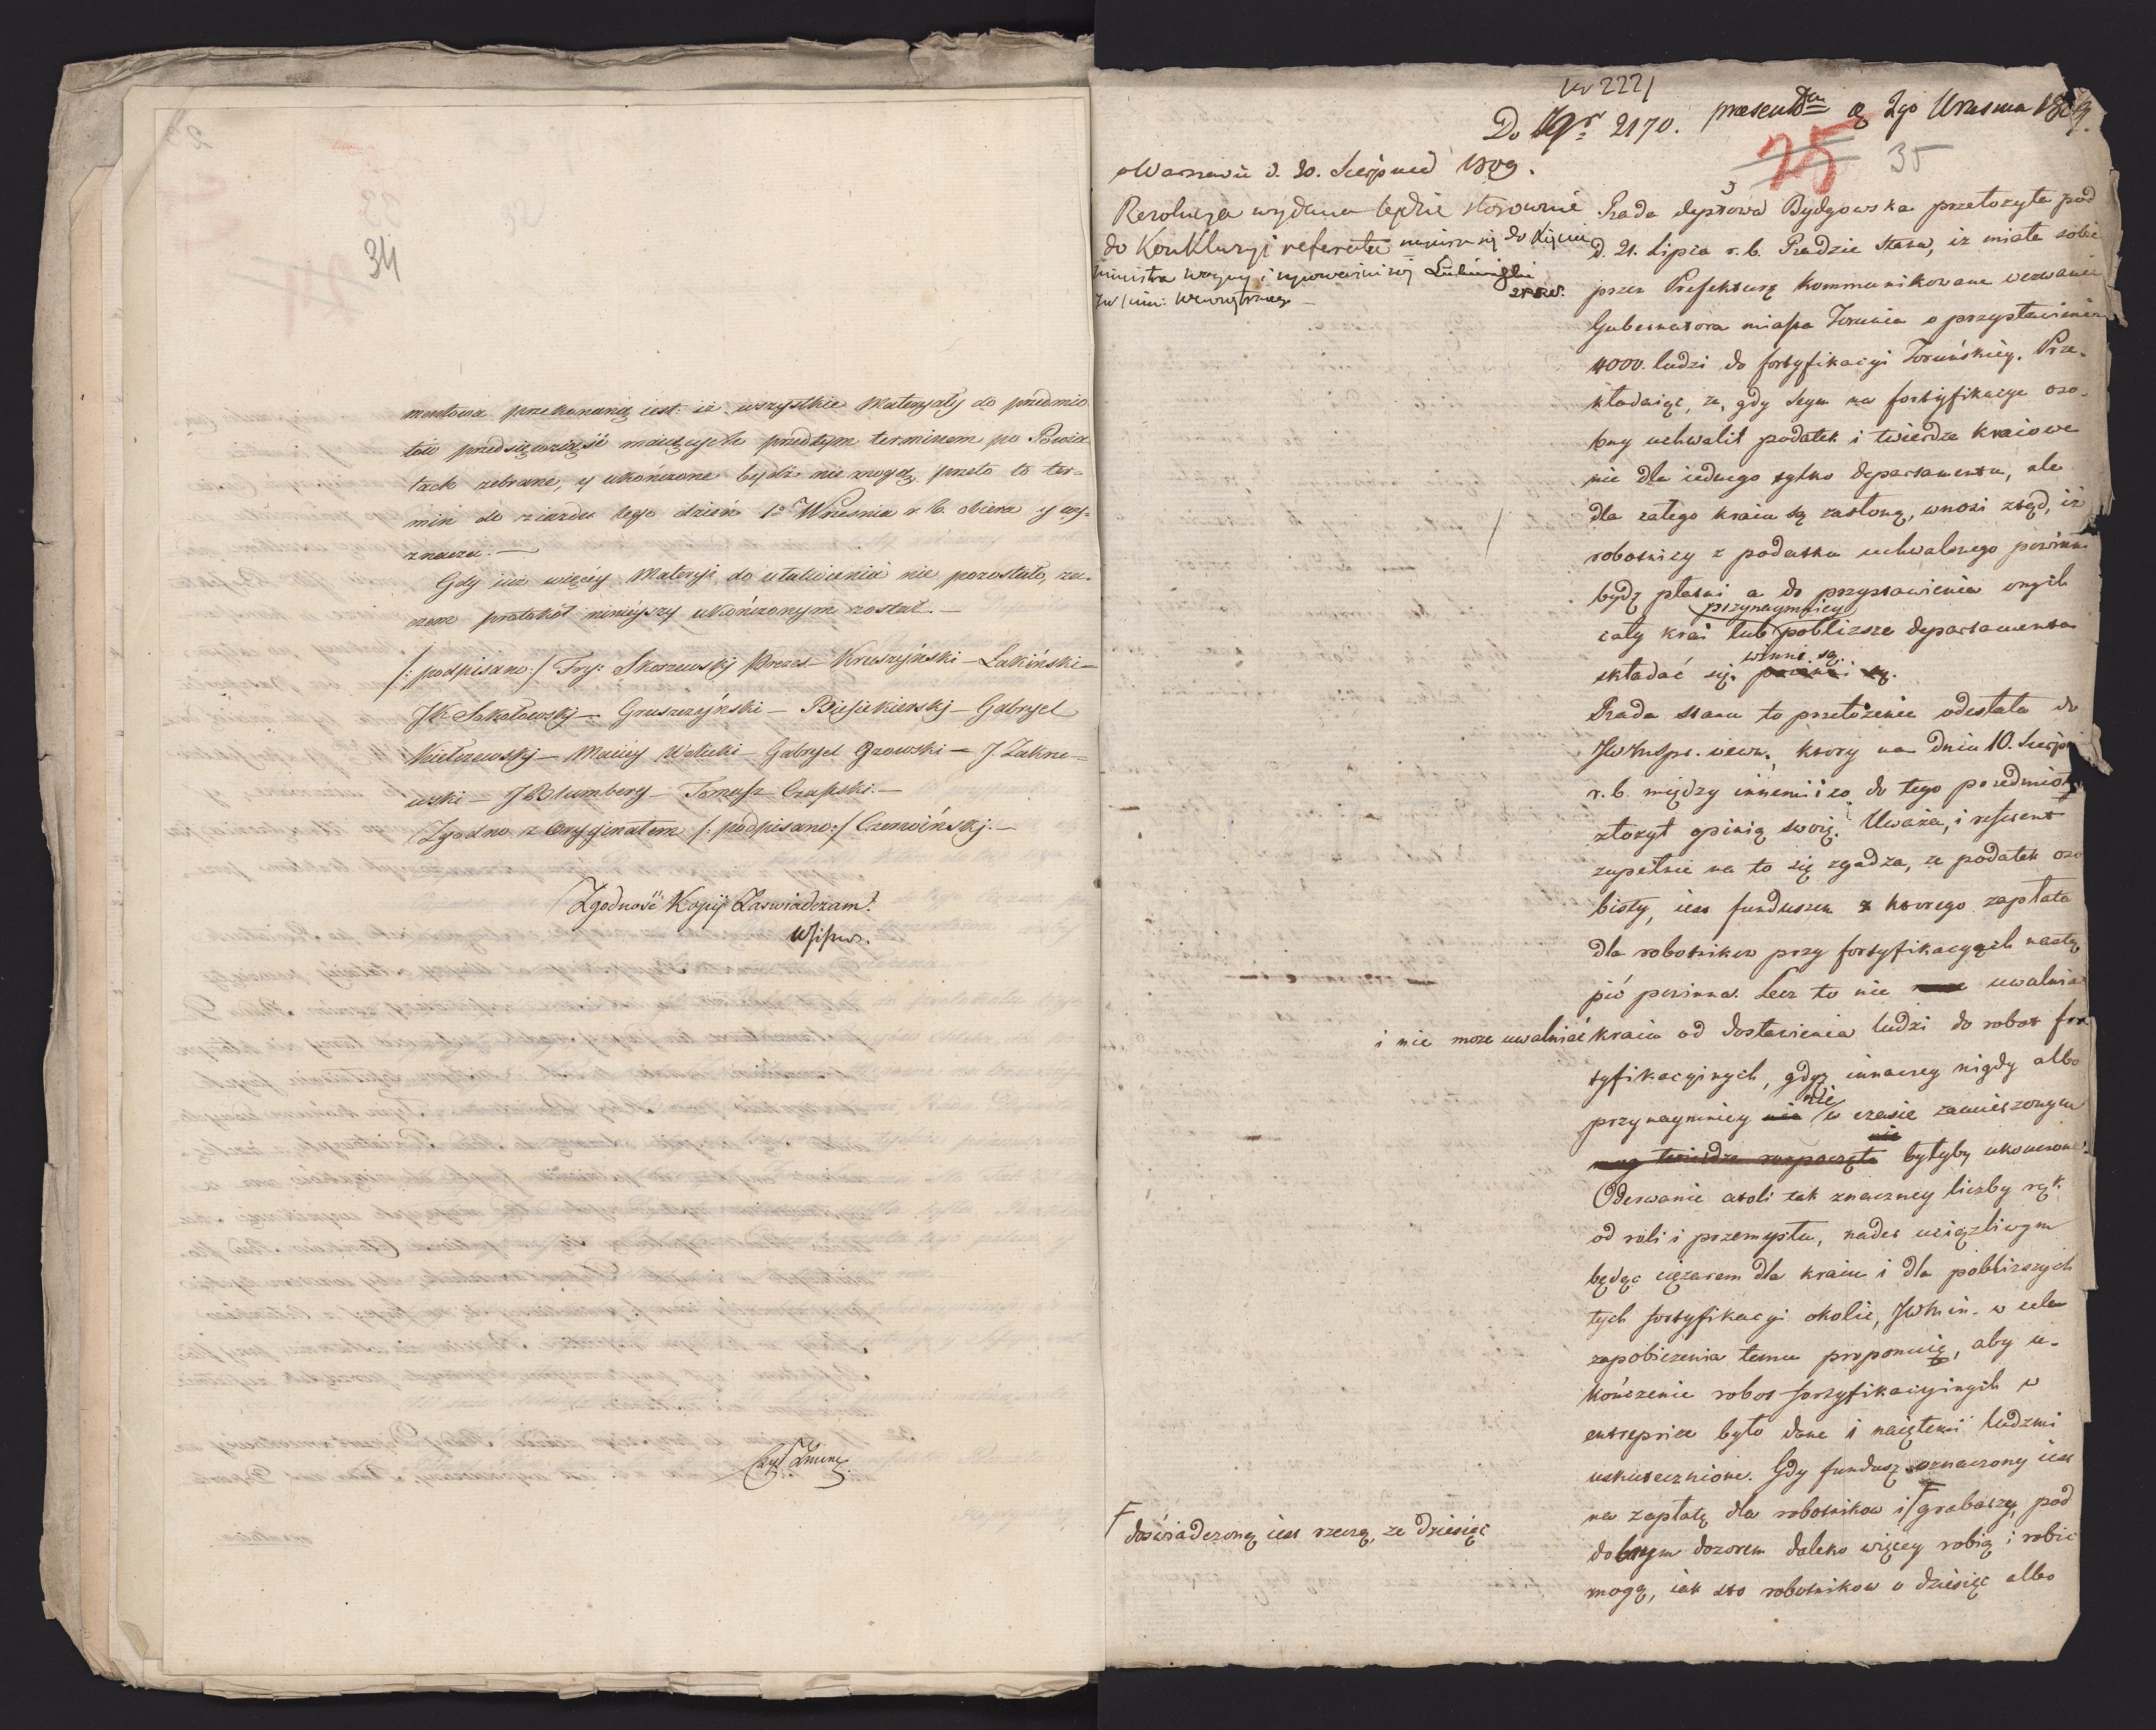 34
mentowa przekonaną iest: iż wszystkie Materyały do przedmio
tów przedsięwziąść maiących przedtym terminem po Powia
tach zebrane, y ukończone bydź nie mogą, przeto to ter-
min do ziazdu tego dzień 1º Września r. b. obiera y wy-
znacza.—
Gdy iuż więcéy Materyi do ułatwienia nie pozostało, za-
czem protokół ninieyszy ukończonym został.—
/: podpisano :/ Fry: Skorzewskj Prezes — Kruszyński — Lakiński —
JK. Sokołowskj — Gruszczyński — Biesiekierskj — Gabryel
Kiełczewskj — Maciey Walicki — Gabryel Ozowski — J. Zakrze-
wski — J Blumberg — Tomasz Czapski.—
Zgodno z Oryginałem /: podpisano :/ Czerwińskj.—
Zgodność Kopij Zaswiadczam.
2221
Do Nr. 2170.
25 35
Warszawie d. 20. Sierpnia 1809.
Rezolucya wydana będzie stosownie
do Konkluzyi referatu
Ministra woyny i
35
Rada depłtowa Bydgowska przełozyła pod
d. 21. Lipca r. b. Radzie Stanu, iż miała sobie
przez Prefekturę kommunikowane wezwanie
Gubernatora miasta Torunia o przystawienie
4000. ludzi do fortyfikacyi Toruńskiéy. Prze-
kładaiąc, ze, gdy Seym na fortyfikacye oso-
bny uchwalił podatek i twierdze kraiowe
nie dla iednego tylko departamentu, ale
dla całego kraiu są zasłoną, wnosi ztąd, iż
robotnicy z podatku uchwalonego powinni
bydź płatni a do przystawienia onych
przynaymniey
cały kray lub pobliższe departamenta
winne są.
składać się. powinni są.
Rada Stanu to przełożenie odesłała do
JWMSpr. wewn., ktory na dniu 10. Sierpn
r. b. między innemi i co do tego przedmiotu
złożył opinią swoię. Uważa, i referent
zupełnie na to się zgadza, ze podatek oso
bisty, iest funduszem z ktorego zapłata
dla robotnikow przy fortyfikacyach nastą
pić powinna. Lecz to nie uwalnia
i nie może uwalniać kraiu od dostawienia ludzi do robot for
tyfikacyinych, gdyż inaczey nigdy albo
nie
przynaymniey nie w czasie zamierzonym
nie
twierdze rozpoczęte byłyby ukonczone.
Oderwanie atoli tak znaczney liczby rąk
od roli i przemysłu, nader uciążliwym
będąc ciężarem dla kraiu i dla pobliższych
tych fortyfikacyi okolic, JWMin. w celu
zapobieżenia temu proponuię, aby u-
kończenie robot fortyfikacyinych w
entreprize było dane i naiętemi ludzmi
uskutecznione. Gdy fundusz oznaczony iest
na zapłatę dla robotnikow i F grabarzy, pod
F doświadczoną iest rzeczą, ze dziesięć
dobrym dozorem daleko więcey robią i robić
mogą, iak sto robotnikow o dziesięć albo